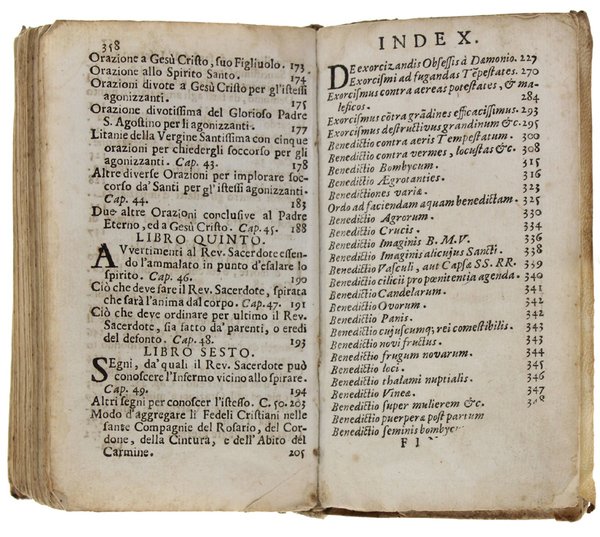 358
Orazione a Gesù Cristo, suo Figliuolo. 173
Orazione allo Spirito Santo. 174
Orazioni divote a Gesù Cristo per gl'istessi
agonizzanti. 175
Orazione divotissima del Glorioso Padre
S. Agostino per li agonizzanti. 177
Litanie della Vergine Santissima con cinque
orazioni per chiedergli soccorso per gli
agonizzanti. Cap. 43. 178
Altre diverse Orazioni per implorare soc-
corso da' Santi per gl'istessi agonizzanti.
Cap. 44. 183
Due altre Orazioni conclusive al Padre
Eterno, ed a Gesù Cristo. Cap. 45. 188
LIBRO QUINTO.
AVvertimenti al Rev. Sacerdote essen-
do l'ammalato in punto d'esalare lo
spirito. Cap. 46. 190
Ciò che deve fare il Rev. Sacerdote, spirata
che sarà l'anima dal corpo. Cap. 47. 191
Ciò che deve ordinare per ultimo il Rev.
Sacerdote, sia fatto da' parenti, o eredi
del defonto. Cap. 48. 193
LIBRO SESTO.
SEgni, da' quali il Rev. Sacerdote può
conoscere l'Infermo vicino allo spirare.
Cap. 49. 194
Altri segni per conoscer l'istesso. C. 50. 203
Modo d'aggregare li Fedeli Cristiani nelle
sante Compagnie del Rosario, del Cor-
done, della Cintura, e dell'Abito del
Carmine. 205
INDEX.
DE exorcizandis Obsessis à Dæmonio. 227
Exorcismi ad fugandas Tẽpestates. 270
Exorcismus contra aereas potestates, & ma-
leficos. 284
Exorcismus cõtra grãdines efficacissimus. 293
Exorcismus destructivus grandinum &c. 295
Benedictio contra aeris Tempestatum. 300
Benedictio contra vermes, locustas &c. 308
Benedictio Bombycum. 315
Benedictio Ægrotanties. 316
Benedictiones variæ. 323
Ordo ad faciendam aquam benedictam. 325
Benedictio Agrorum. 330
Benedictio Crucis. 334
Benedictio Imaginis B. M. V. 336
Benedictio Imaginis alicujus Sancti. 338
Benedictio Vasculi, aut Capsæ SS. RR. 339
Benedictio cilicii pro pœnitentia agenda. 340
Benedictio Candelarum. 341
Benedictio Ovorum. 342
Benedictio Panis. 342
Benedictio cujuscumq; rei comestibilis. 343
Benedictio novi fructus. 343
Benedictio frugum novarum. 344
Benedictio loci. 345
Benedictio thalami nuptialis. 346
Benedictio Vineæ. 347
Benedictio super mulierem &c.
Benedictio puerperæ post partum
Benedictio seminis bombycu
F I